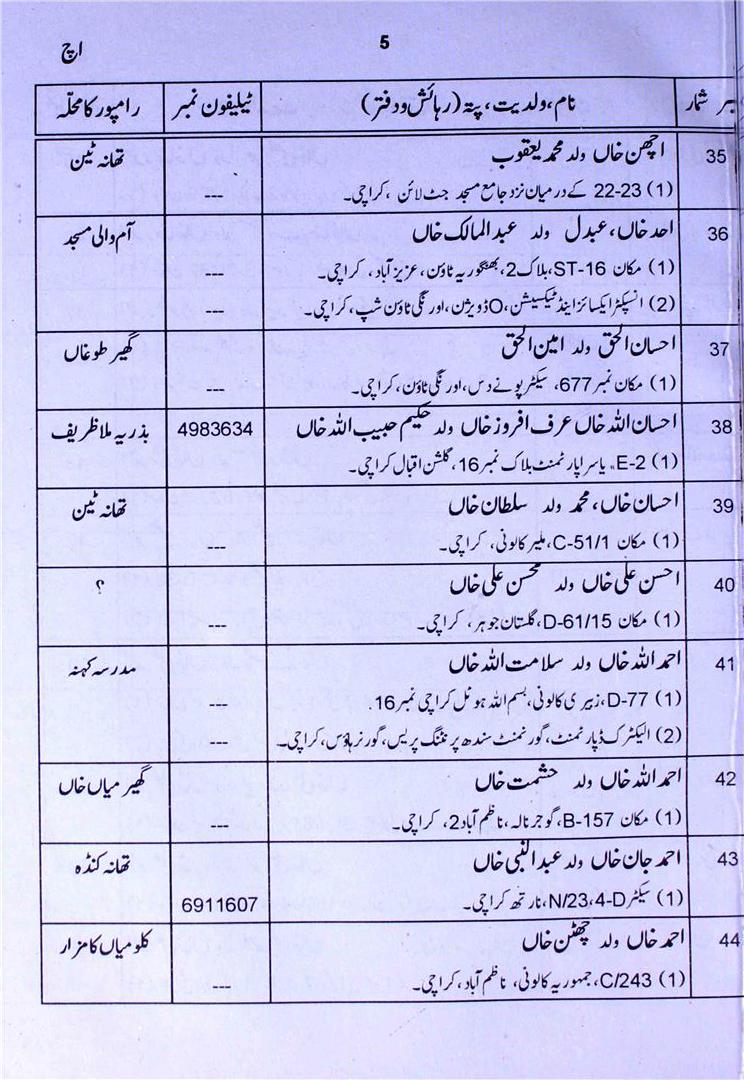 اچ
5
نمبر شمار نام، ولدیت، پتہ (رہائش و دفتر) ٹیلیفون نمبر رامپور کا محلّہ
35 اچھن خاں ولد محمد یعقوب تھانہ ٹین
(1) 22-23 کے درمیان نزد جامع مسجد جٹ لائن ، کراچی۔ ---
36 احد خاں، عبدل ولد عبدالمالک خاں آم والی مسجد
(1) مکان ST-16، بلاک 2، بھنگوریہ ٹاؤن، عزیز آباد ، کراچی۔ ---
(2) انسپکٹر ایکسائز اینڈ ٹیکسیشن، O ڈویژن، اورنگی ٹاؤن شپ، کراچی۔ ---
37 احسان الحق ولد امین الحق گھیر طوغاں
(1) مکان نمبر 677، سیکٹر پونے دس، اورنگی ٹاؤن، کراچی۔ ---
38 احسان اللہ خاں عرف افروز خاں ولد حکیم حبیب اللہ خاں 4983634 بذریہ ملا ظریف
(1) E-2، یاسر اپارٹمنٹ بلاک نمبر 16، گلشن اقبال کراچی۔
39 احسان خاں، محمد ولد سلطان خاں تھانہ ٹین
(1) مکان C-51/1، ملیر کالونی، کراچی۔ ---
40 احسن علی خاں ولد محسن علی خاں ؟
(1) مکان D-61/15، گلستان جوہر، کراچی۔ ---
41 احمد اللہ خاں ولد سلامت اللہ خاں مدرسہ کہنہ
(1) D-77، زبیری کالونی، بسم اللہ ہوٹل کراچی نمبر 16. ---
(2) الیکٹرک ڈپارٹمنٹ، گورنمنٹ سندھ پرنٹنگ پریس، گورنر ہاؤس، کراچی۔ ---
42 احمد اللہ خاں ولد حشمت خاں گھیر میاں خاں
(1) مکان B-157، گوجر نالہ، ناظم آباد 2، کراچی۔ ---
43 احمد جان خاں ولد عبدالنبی خاں تھانہ کنڈہ
(1) سیکٹر N/23،4-D، نارتھ کراچی۔ 6911607
44 احمد خاں ولد چھٹن خاں کلو میاں کا مزار
(1) C/243، جمہوریہ کالونی، ناظم آباد، کراچی۔ ---